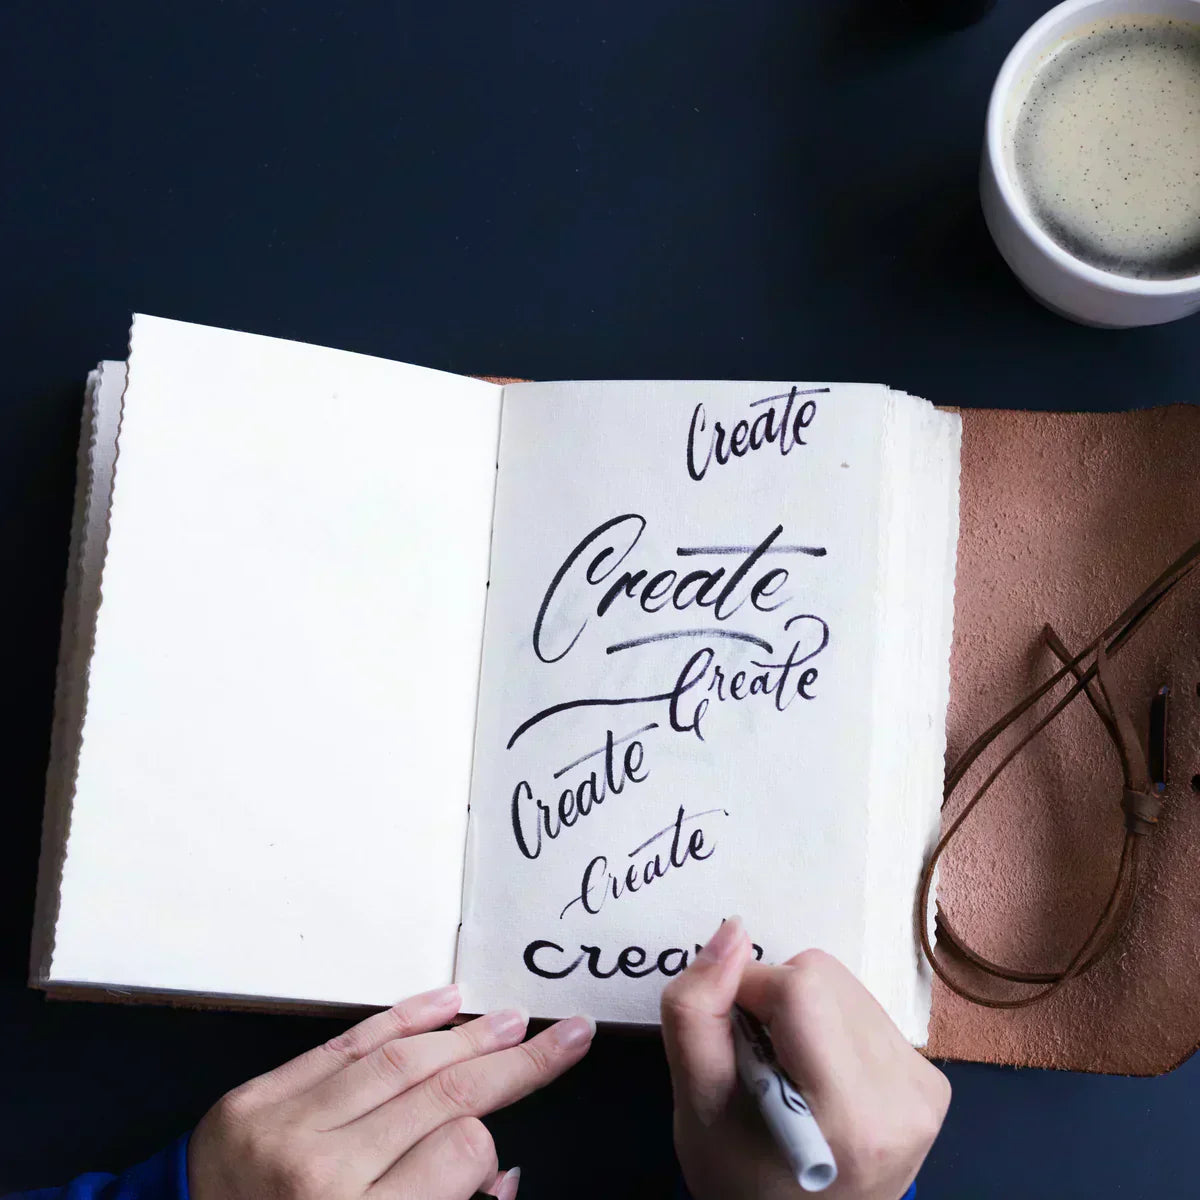 Create
Create
Create
Create
Create
create